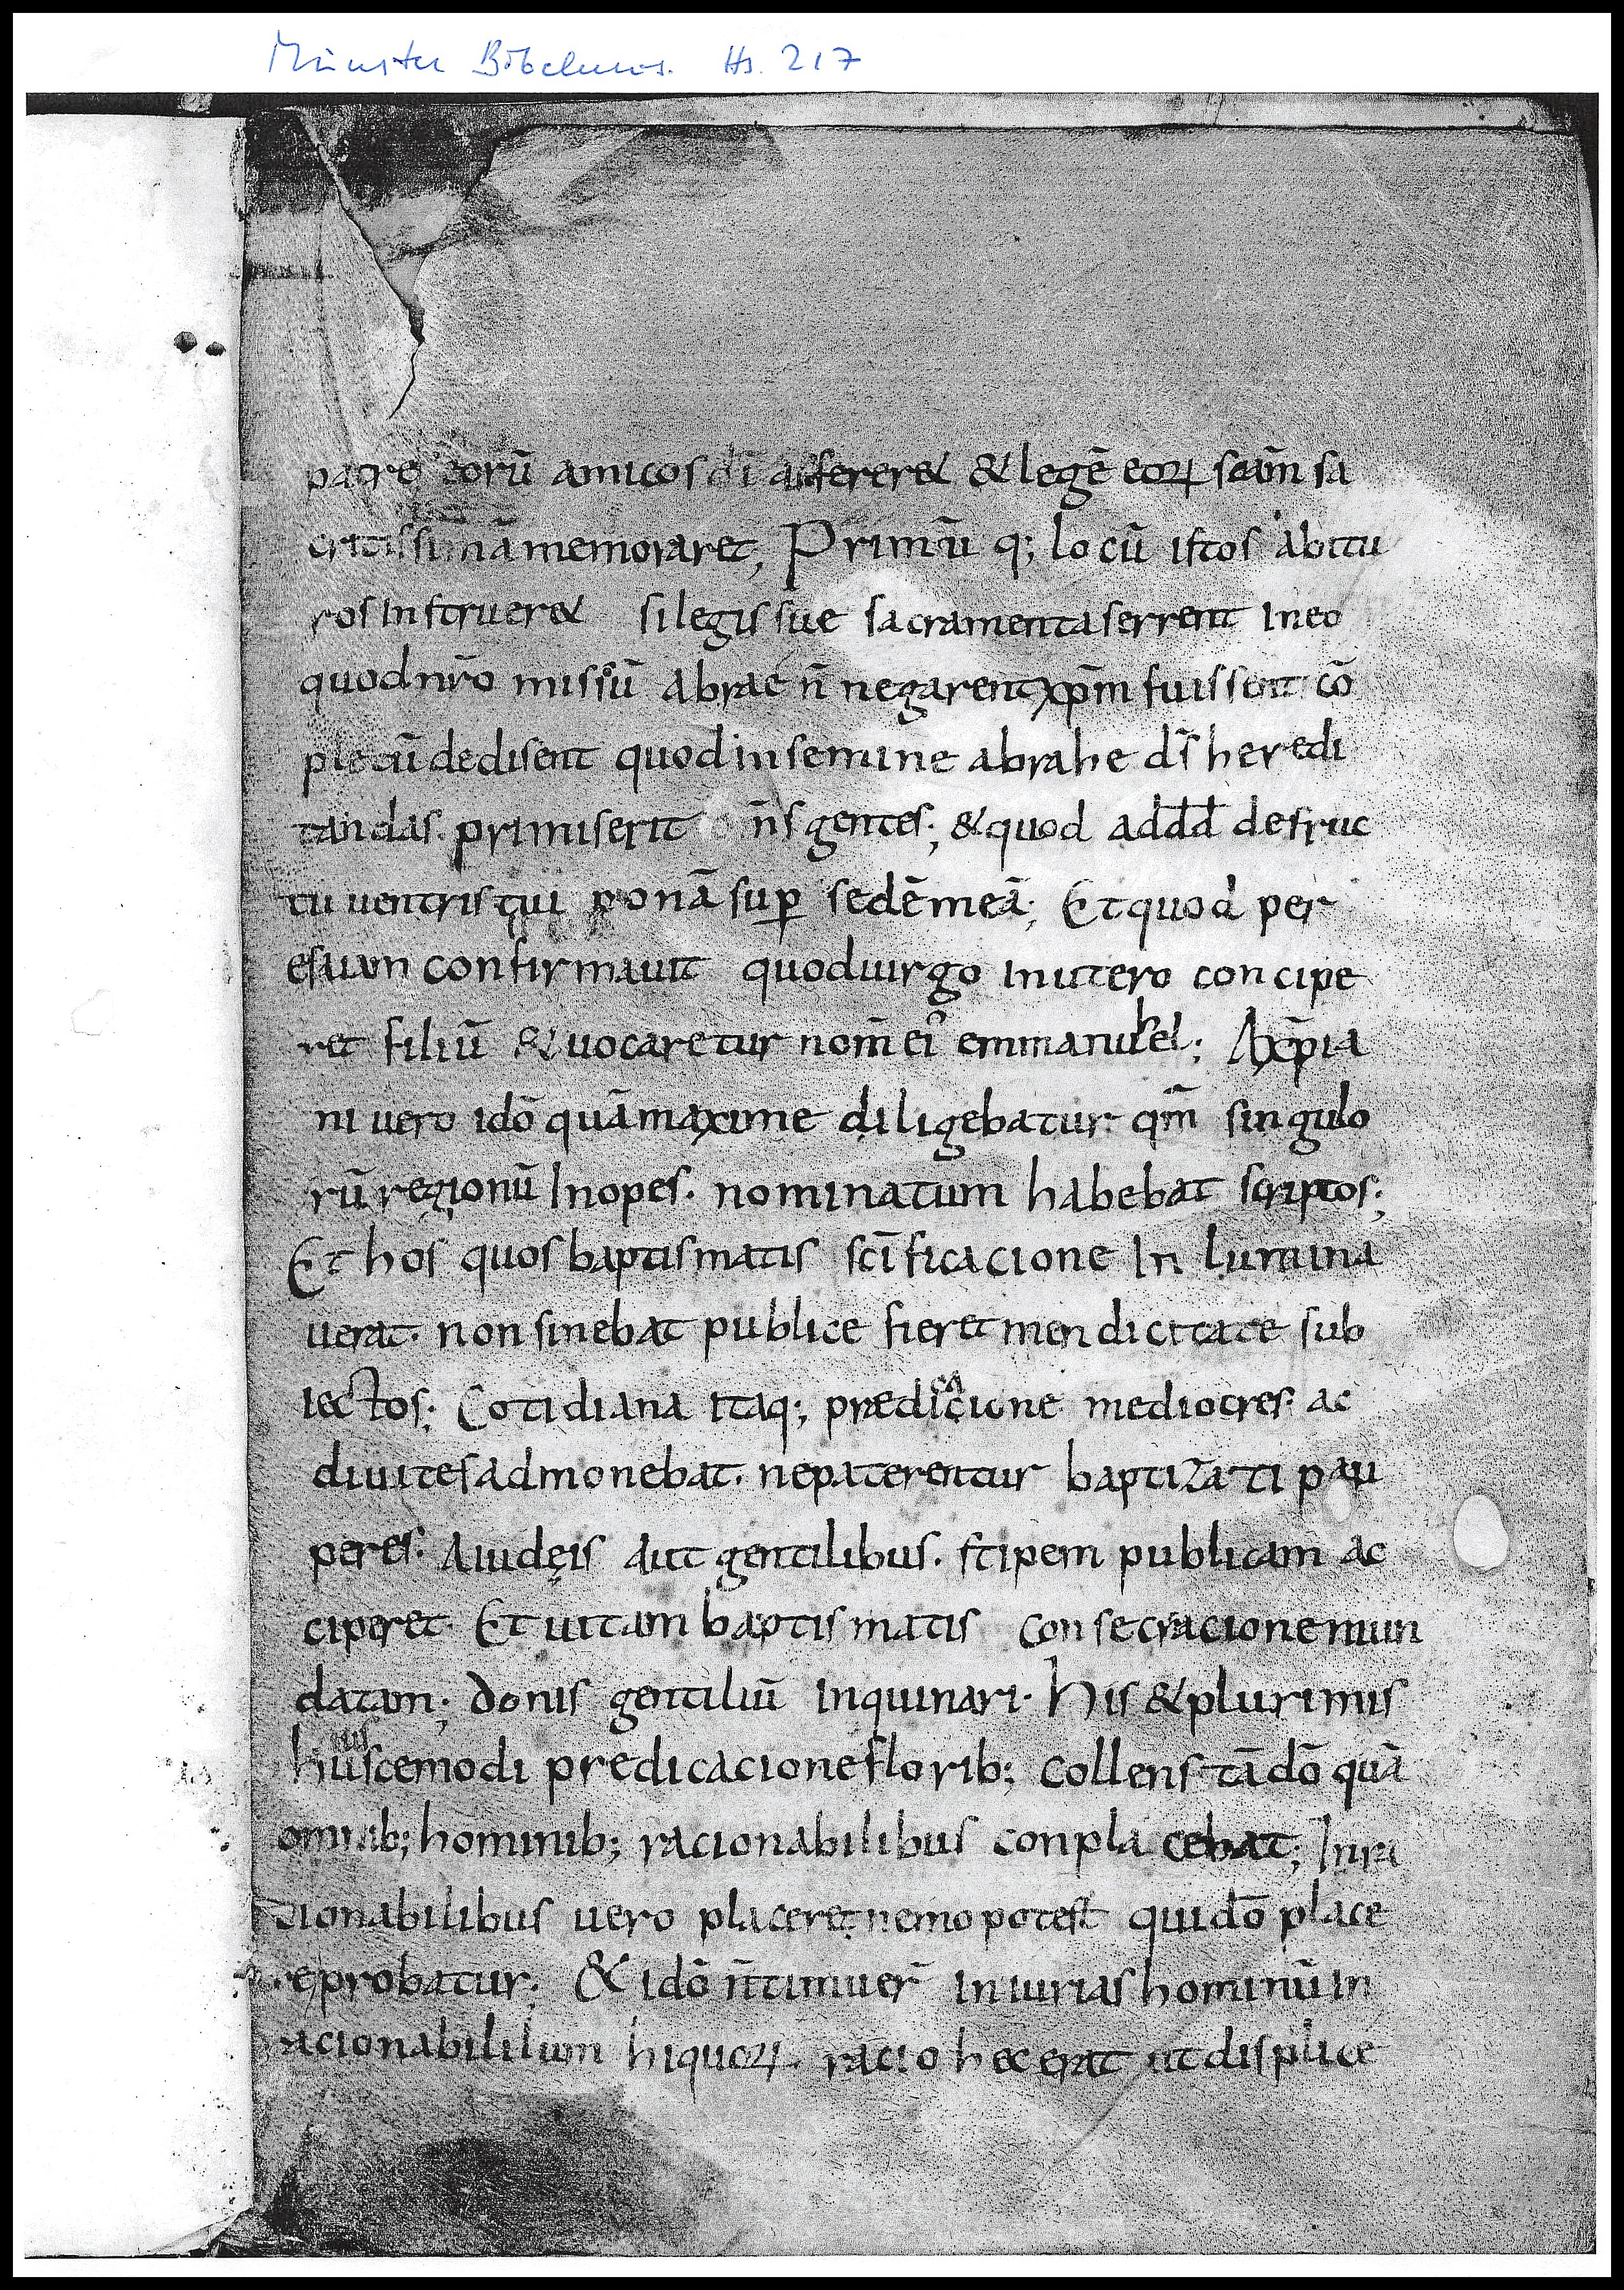 Münster Bibelmus. Hs. 217
patre eorū amicos dī adserer& & legē eoꝝ sc̄am sa
cratissimā memoraret; Primū q; locū istos abitu
ros instruer& si legis sue sacramenta serrent in eo
quod nr̄o missū abrae n̄ negarent xp̄m fuissent cō
pletū dedisent quod in semine abrahe d̄s heredi
tandas primiserit on̄s gentes; & quod ad d̄d̄ de fruc
tu uentris tui ponā sup̄ sedē meā; Et quod per
esaiam confirmauit quod uirgo in utero concipe
ret filiū & uocaretur nom̄ ei' emmanuhel; A xp̄ia
ni uero idō quā maxime diligebatur qm̄ singulo
rū regionū Inopes. nominatum habebat scriptos;
Et hos quos baptismatis sc̄ificacione In lumina
uerat. non sinebat publice fieret mendicitate sub
iectos; Cotidiana itaq; prædicacione mediocres. ac
diuites admonebat. ne paterentur baptizati pau
peres. A iudęis aut gentilibus. stipem publicam ac
ciperet Et uitam baptismatis consecracione mun
datam; donis gentiliū inquinari. His & plurimis
huiuscemodi predicacione florib; collens tā dō quā
omnib; hominib; racionabilibus conplacebat; Inra
cionabilibus uero placeret nemo potest qui dō place
re probatur; & idō n̄ timuer̄ iniurias hominū in
racionabililium hi quoꝝ racio hec erat ut displice